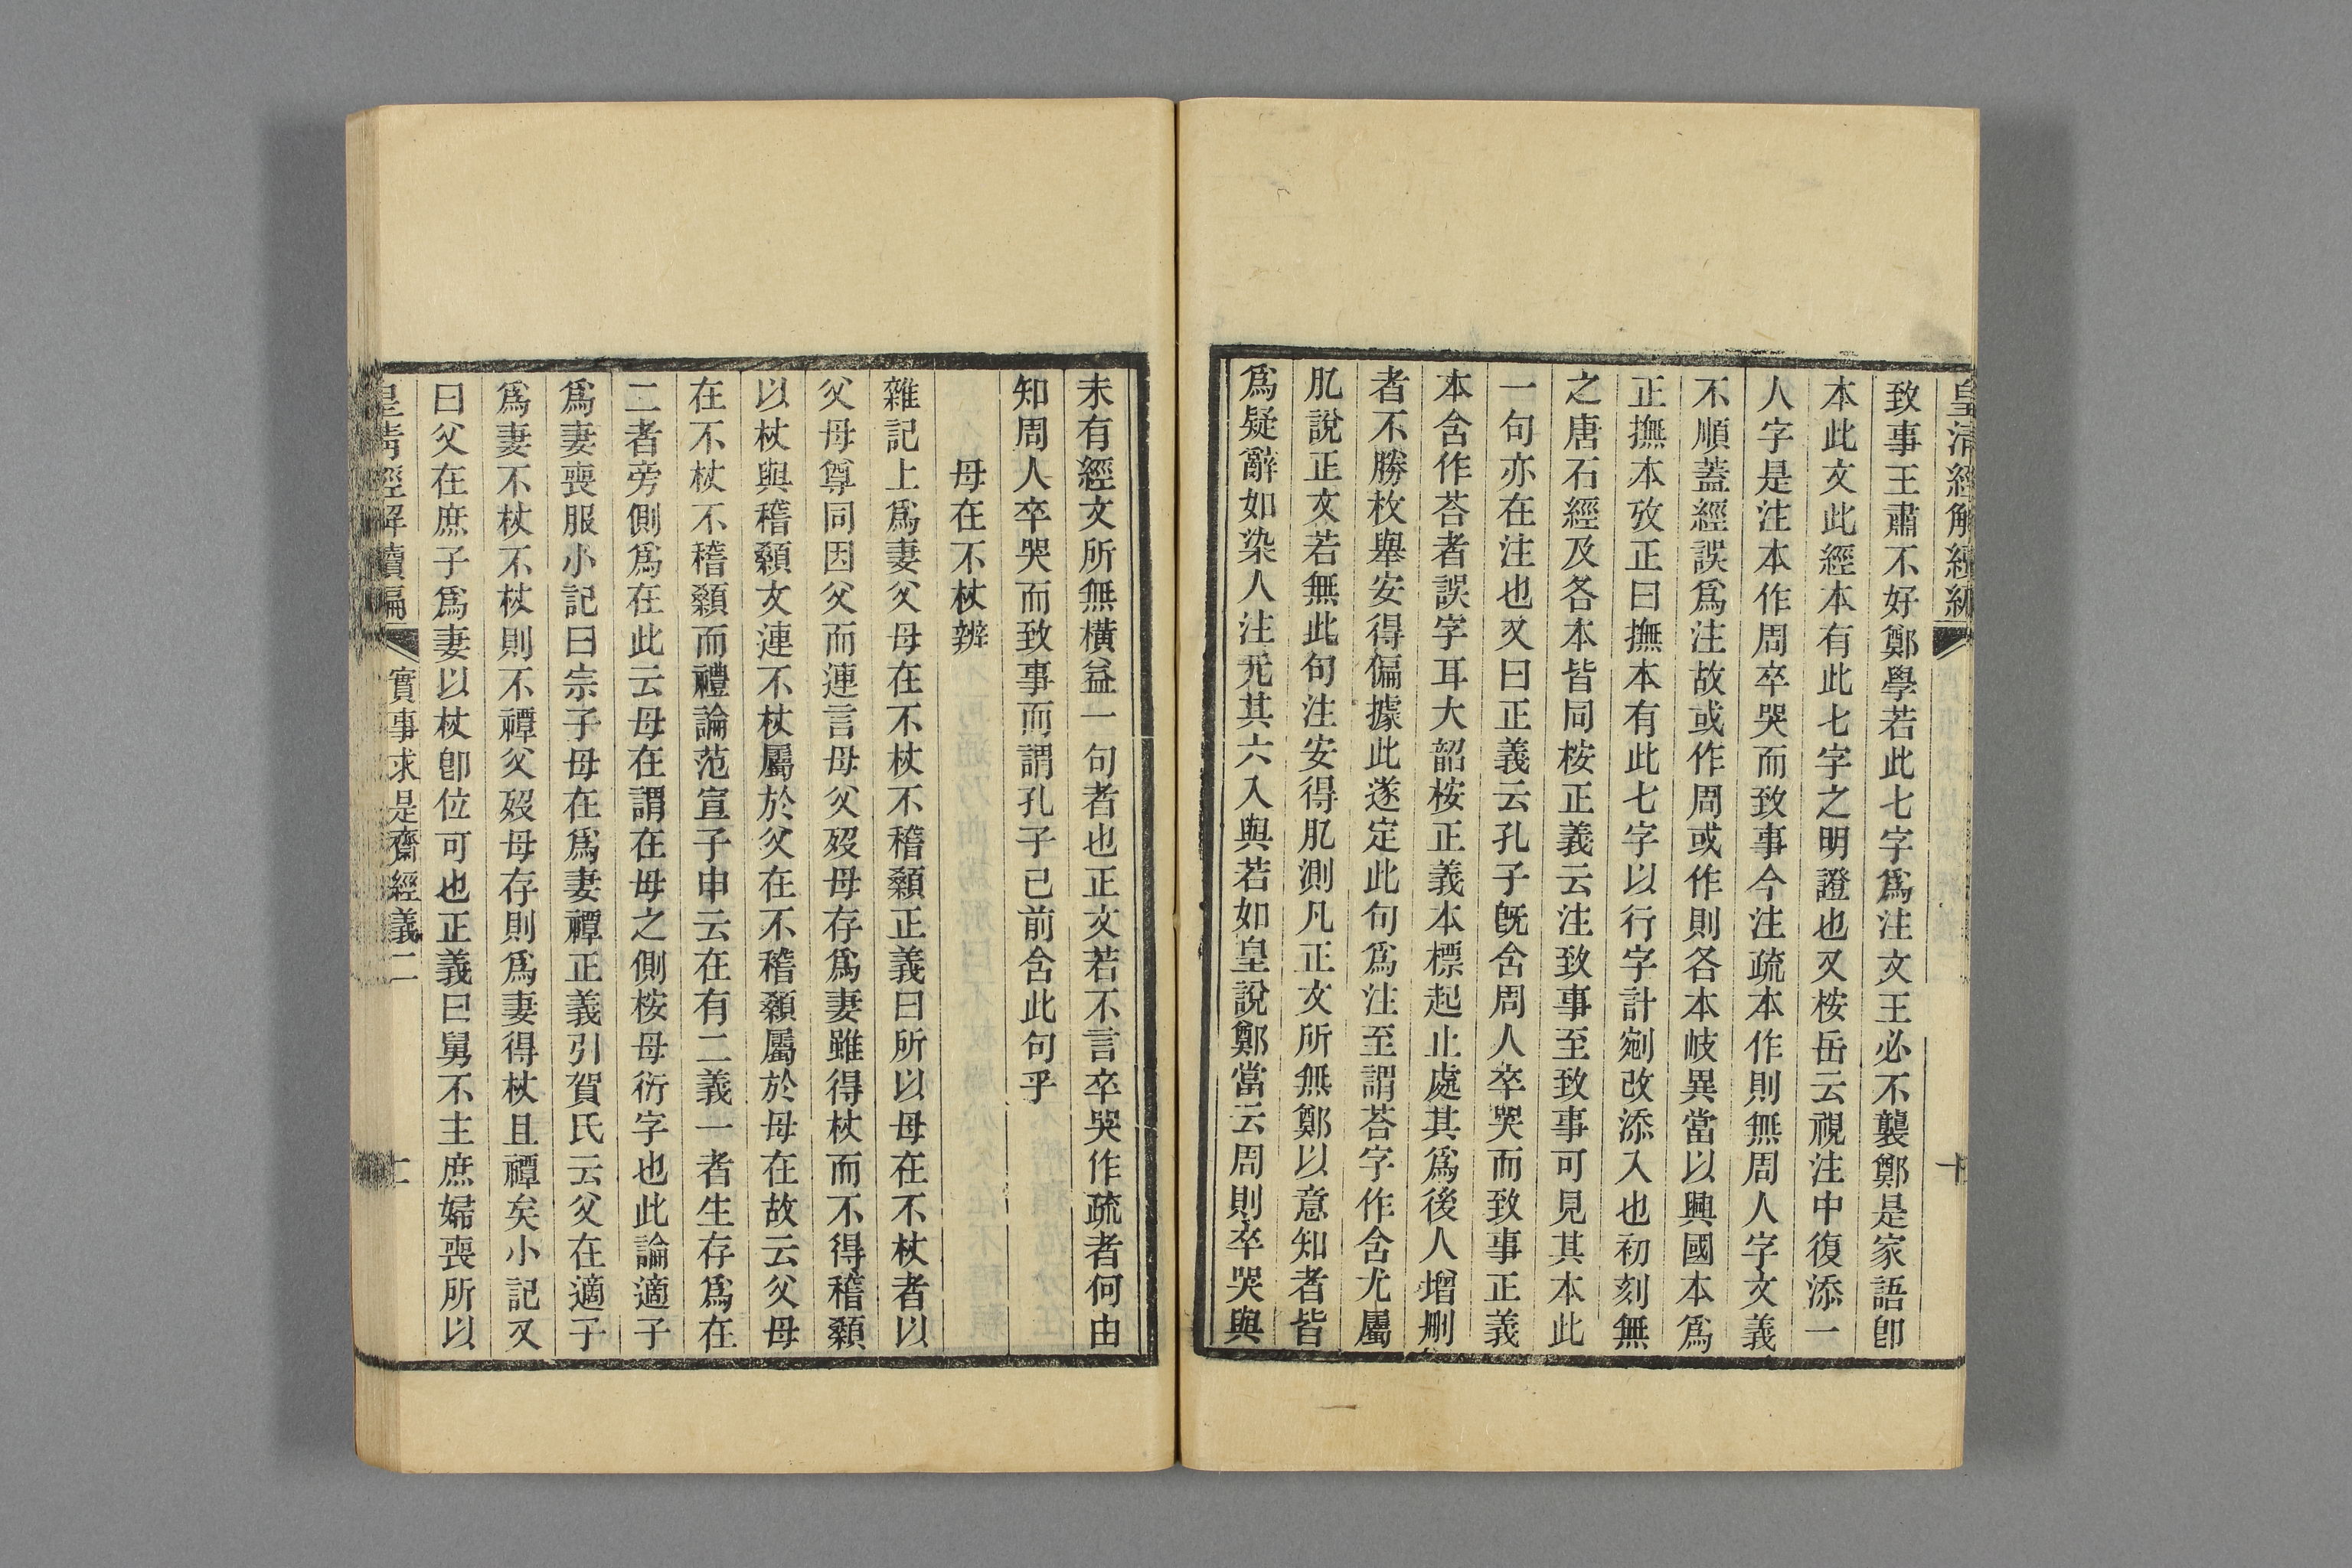 皇清經解續編
十
致事王肅不好鄭學若此七字爲注文王必不襲鄭是家語卽
本此文此經本有此七字之明證也又桉岳云視注中復添一
人字是注本作周卒哭而致事今注疏本作則無周人字文義
不順蓋經誤爲注故或作周或作則各本岐異當以興國本爲
正撫本攷正曰撫本有此七字以行字計剜改添入也初刻無
之唐石經及各本皆同桉正義云注致事至致事可見其本此
一句亦在注也又曰正義云孔子旣含周人卒哭而致事正義
本含作荅者誤字耳大韶桉正義本標起止處其爲後人增刪
者不勝枚舉安得偏據此遂定此句爲注至謂荅字作含尤屬
肊說正文若無此句注安得肊測凡正文所無鄭以意知者皆
爲疑辭如染人注玧其六入與若如皇說鄭當云周則卒哭與
未有經文所無橫益一句者也正文若不言卒哭作疏者何由
知周人卒哭而致事而謂孔子已前含此句乎
母在不杖辨
雜記上爲妻父母在不杖不稽顙正義曰所以母在不杖者以
父母尊同因父而連言母父歿母存爲妻雖得杖而不得稽顙
以杖與稽顙文連不杖屬於父在不稽顙屬於母在故云父母
在不杖不稽顙而禮論范宣子申云在有二義一者生存爲在
二者旁側爲在此云母在謂在母之側桉母衍字也此論適子
爲妻喪服小記曰宗子母在爲妻禫正義引賀氏云父在適子
爲妻不杖不杖則不禫父歿母存則爲妻得杖且禫矣小記又
曰父在庶子爲妻以杖卽位可也正義曰舅不主庶婦喪所以
皇清經解續編
實事求是齋經義二